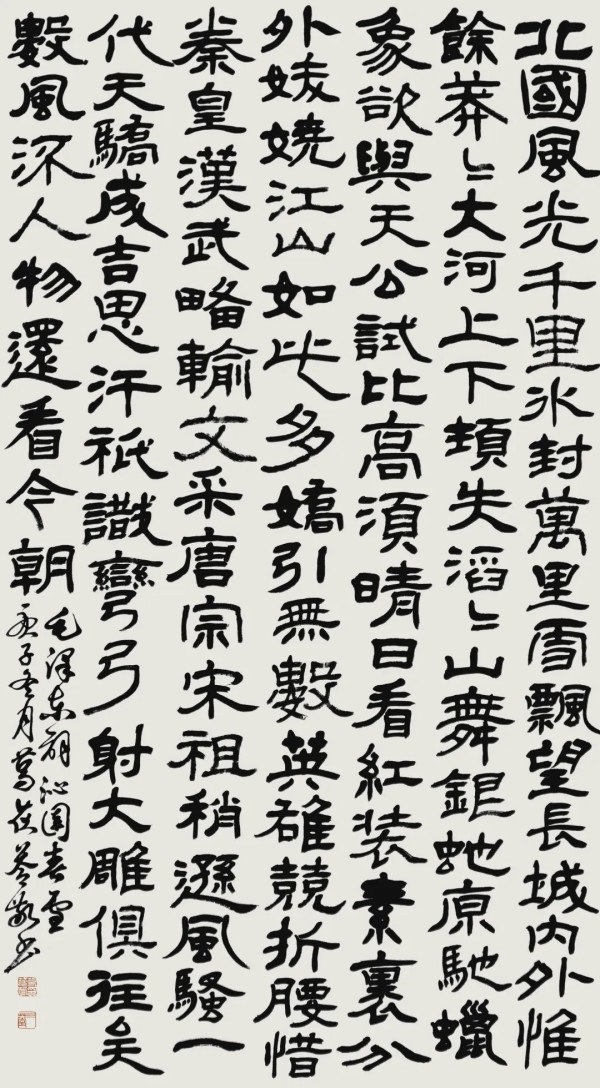 北國風光千里冰封萬里雪飄望長城内外惟
餘莽〻大河上下頓失滔〻山舞銀蛇原馳蠟
象欲與天公試比髙須晴日看紅装素裹分
外妖嬈江山如此多嬌引無數英雄競折腰惜
秦皇漢武略輸文采唐宗宋祖稍遜風騷一
代天驕成吉思汗祇識彎弓射大雕俱往矣
數風流人物還看今朝
毛澤東詞沁園春雪
子冬月葛